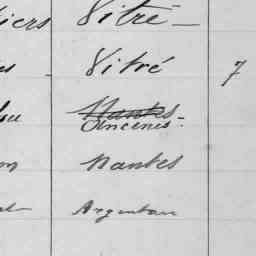 iers Vitré –
Vitré 7
Nantes
Ancenis -
Nantes
Argentan